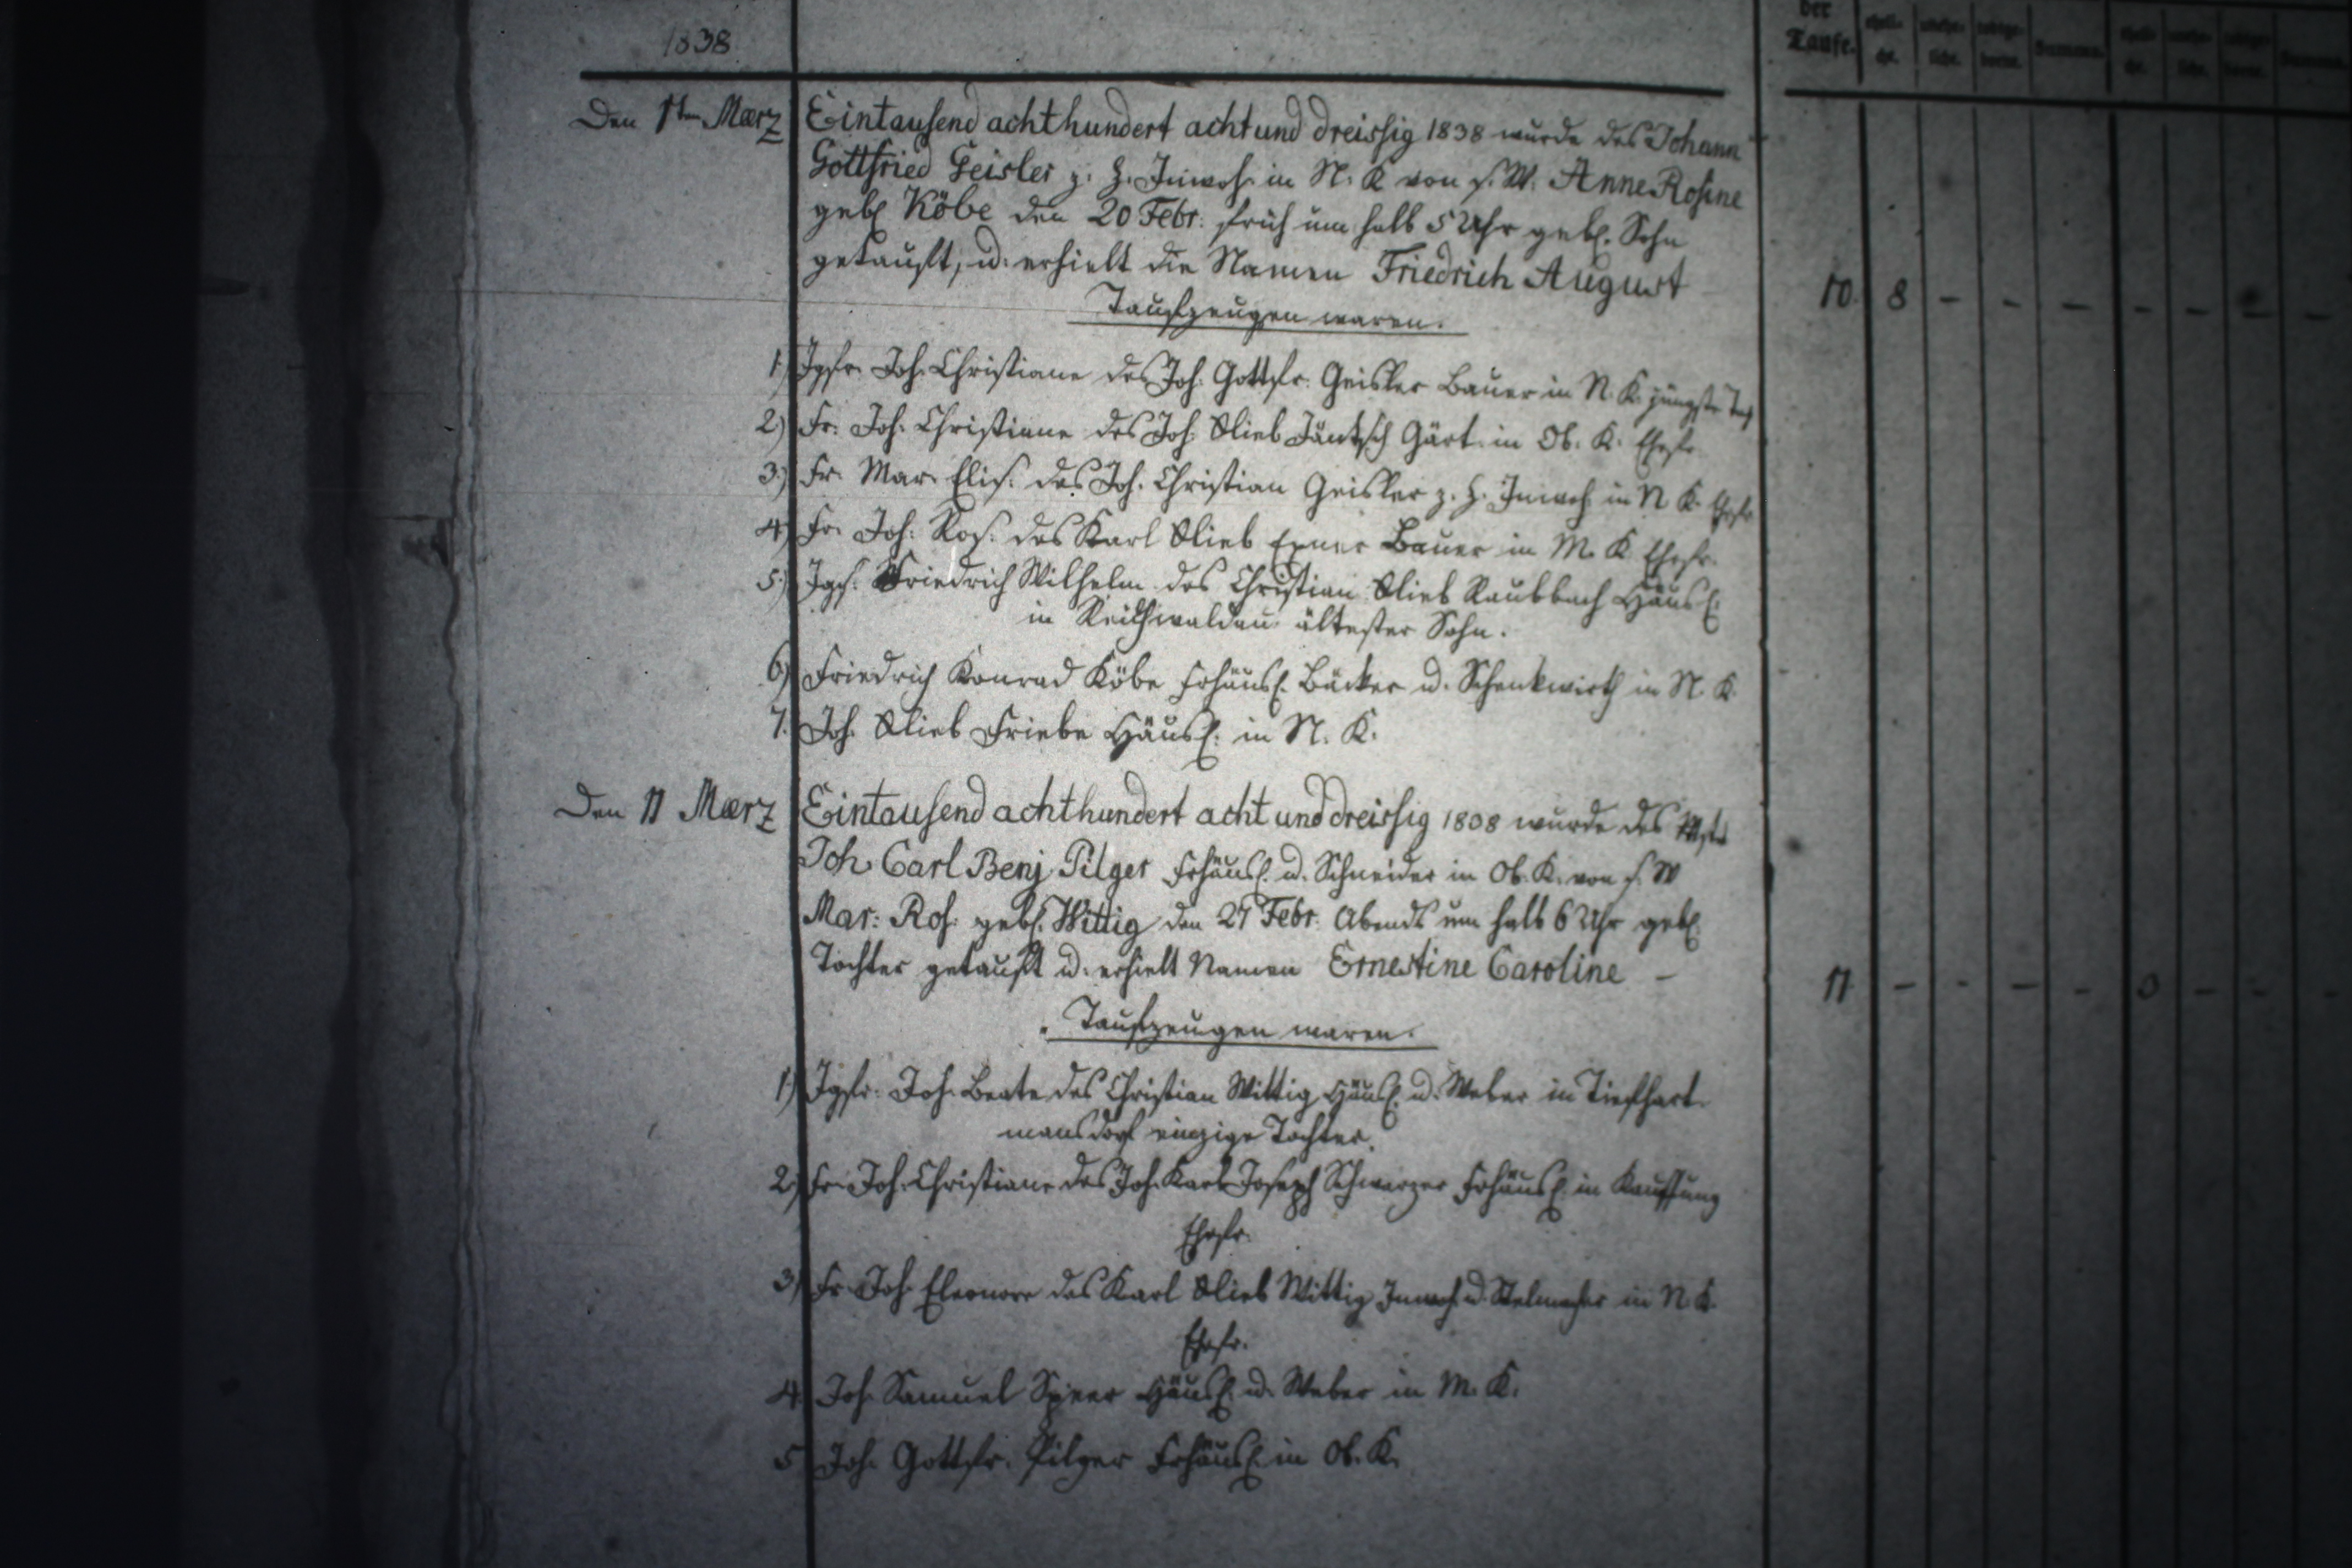 1838
der
Taufe.
Summa.
Den 1ten Maerz
Eintausend achthundert acht und dreissig 1838 wurde des Johann
Gottfried Geisler z. H. Inwoh. in N. K. von s. W. Anne Rosine
geb. Köbe den 20 Febr. früh um halb 5 Uhr geb. Sohn
getauft, u. erhielt die Namen Friedrich August
Taufzeugen waren.
10. 8 - - - - - - -
1.) Jgfr. Joh. Christiane des Joh. Gottfr. Geisler Bauer in N. K. jüngste Tocht.
2.) Fr. Joh. Christiane des Joh. Glieb Jäntsch Gärt. in Ob. K. Ehefr.
3.) Fr. Mar. Elis. des Joh. Christian Geisler z. H. Inwoh. in N. K. Ehefr.
4.) Fr. Joh. Ros. des Karl Glieb Exner Bauer in M. K. Ehefr.
5.) Jgs. Friedrich Wilhelm des Christian Glieb Raubbach Häusl.
in Reichwaldau ältester Sohn.
6.) Friedrich Konrad Köbe Frhäusl. Bäcker u. Schenkwirth in N. K.
7. Joh. Glieb Friebe Häusl. in N. K.
Den 11 Maerz
Eintausend achthundert acht und dreissig 1838 wurde des Mstr
Joh. Carl Benj. Pilger Frhäusl. u. Schneider in Ob. K. von s. W
Mar. Ros. geb. Wittig den 27 Febr. Abends um halb 6 Uhr geb.
Tochter getauft u. erhielt Namen Ernestine Caroline -
11 - - - - 3 - - -
Taufzeugen waren.
1.) Jgfr. Joh. Beate des Christian Wittig Häusl. u. Weber in Tiefhart-
mansdorf einzige Tochter.
2.) Fr. Joh. Christiane des Joh. Karl Joseph Schwarzer Frhäusl. in Kauffung
Ehefr.
3.) Fr. Joh. Eleonore des Karl Glieb Wittig Inwoh. u. Stelmacher in N. K.
Ehefr.
4. Joh. Samuel Speer Häusl. u. Weber in M. K.
5. Joh. Gottfr. Pilger Frhäusl. in Ob. K.